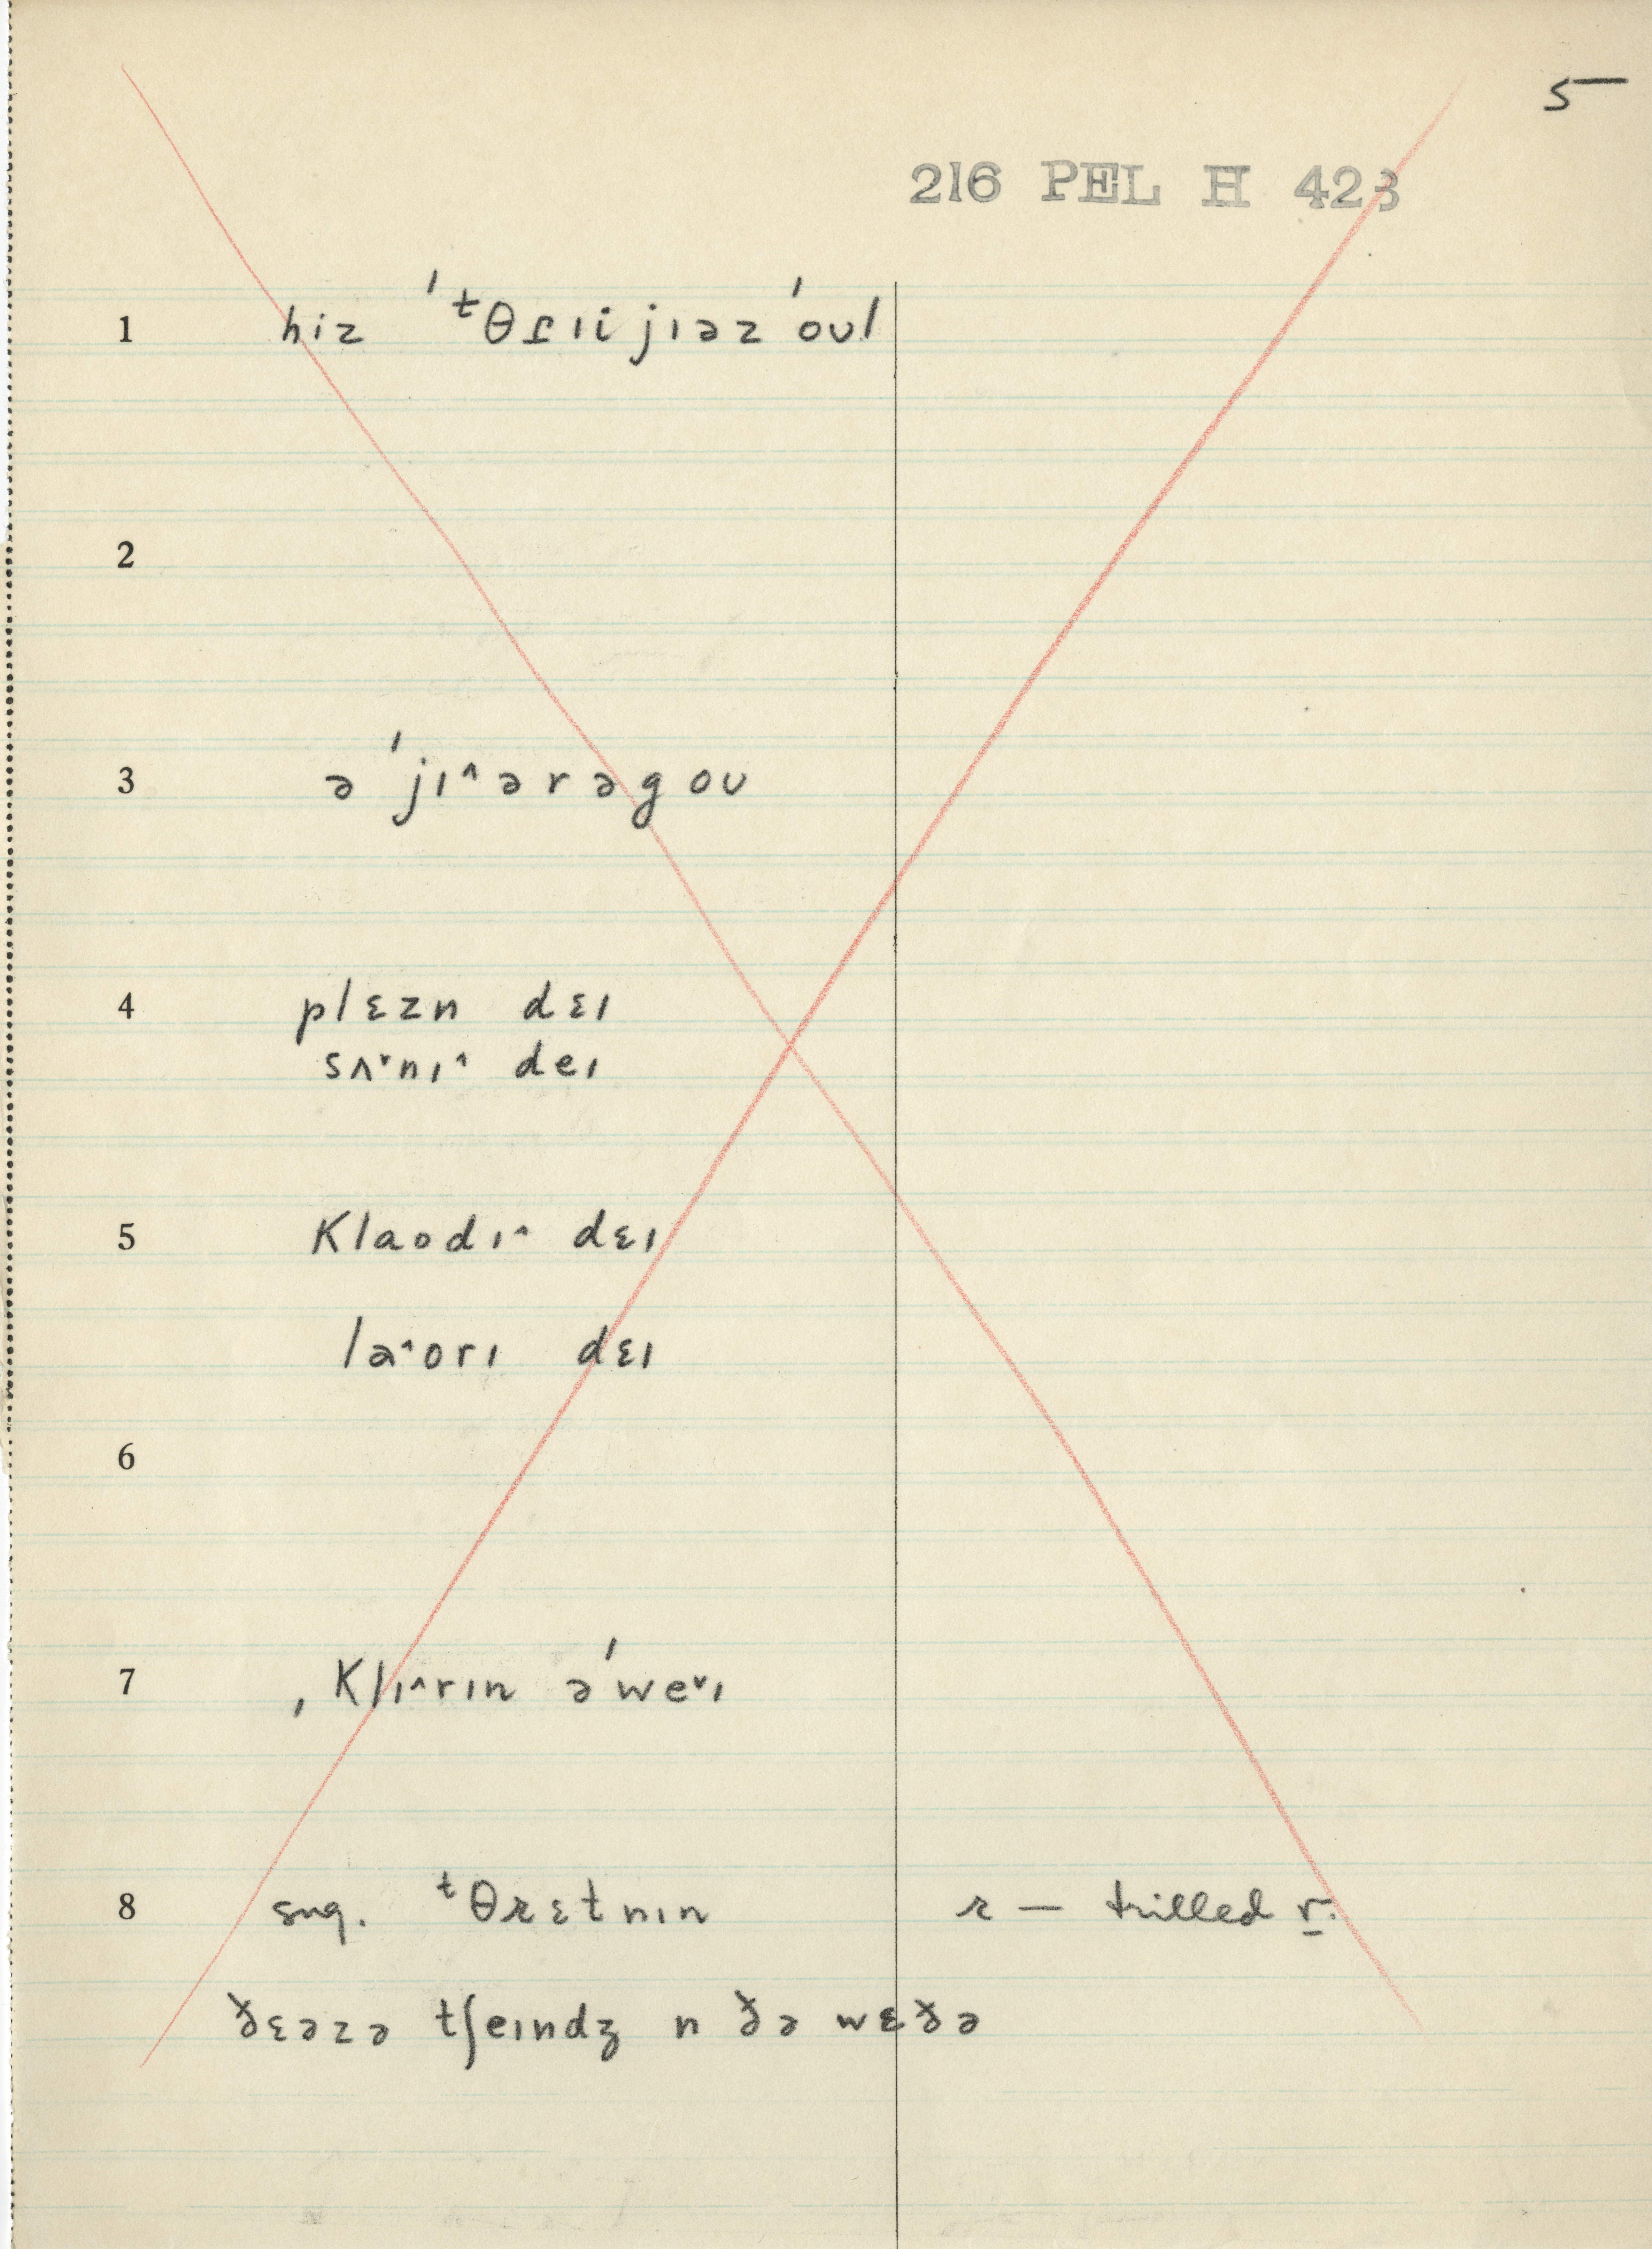 5
216 PEL H 423
1 hiz ˈᵗθɾɪi jɪəz ˈoʊl
2
3 ə ˈjɪ˄ərəgoʊ
4 plɛzn dɛɪ
sʌ˅nɪ˄ deɪ
5 klaodɪ˄ dɛɪ
la˄orɪ dɛɪ
6
7 ˌklɪ˄rɪn əˈwe˅ɪ
8 sug. ᵗθɹɛtnɪn ɹ — trilled r.
ðɛəzə tʃeɪndʒ n ðə wɛðə